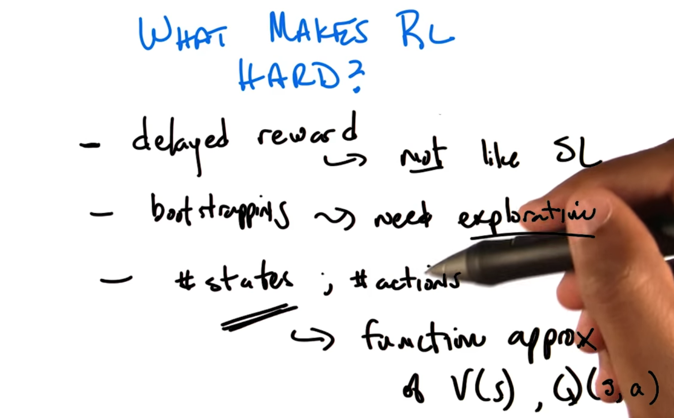 WHAT MAKES RL
HARD?
- delayed reward
↳ not like SL
- bootstrapping ⇝ need exploration
- # states ; # actions
↳ function approx
of V(s), Q(s,a)